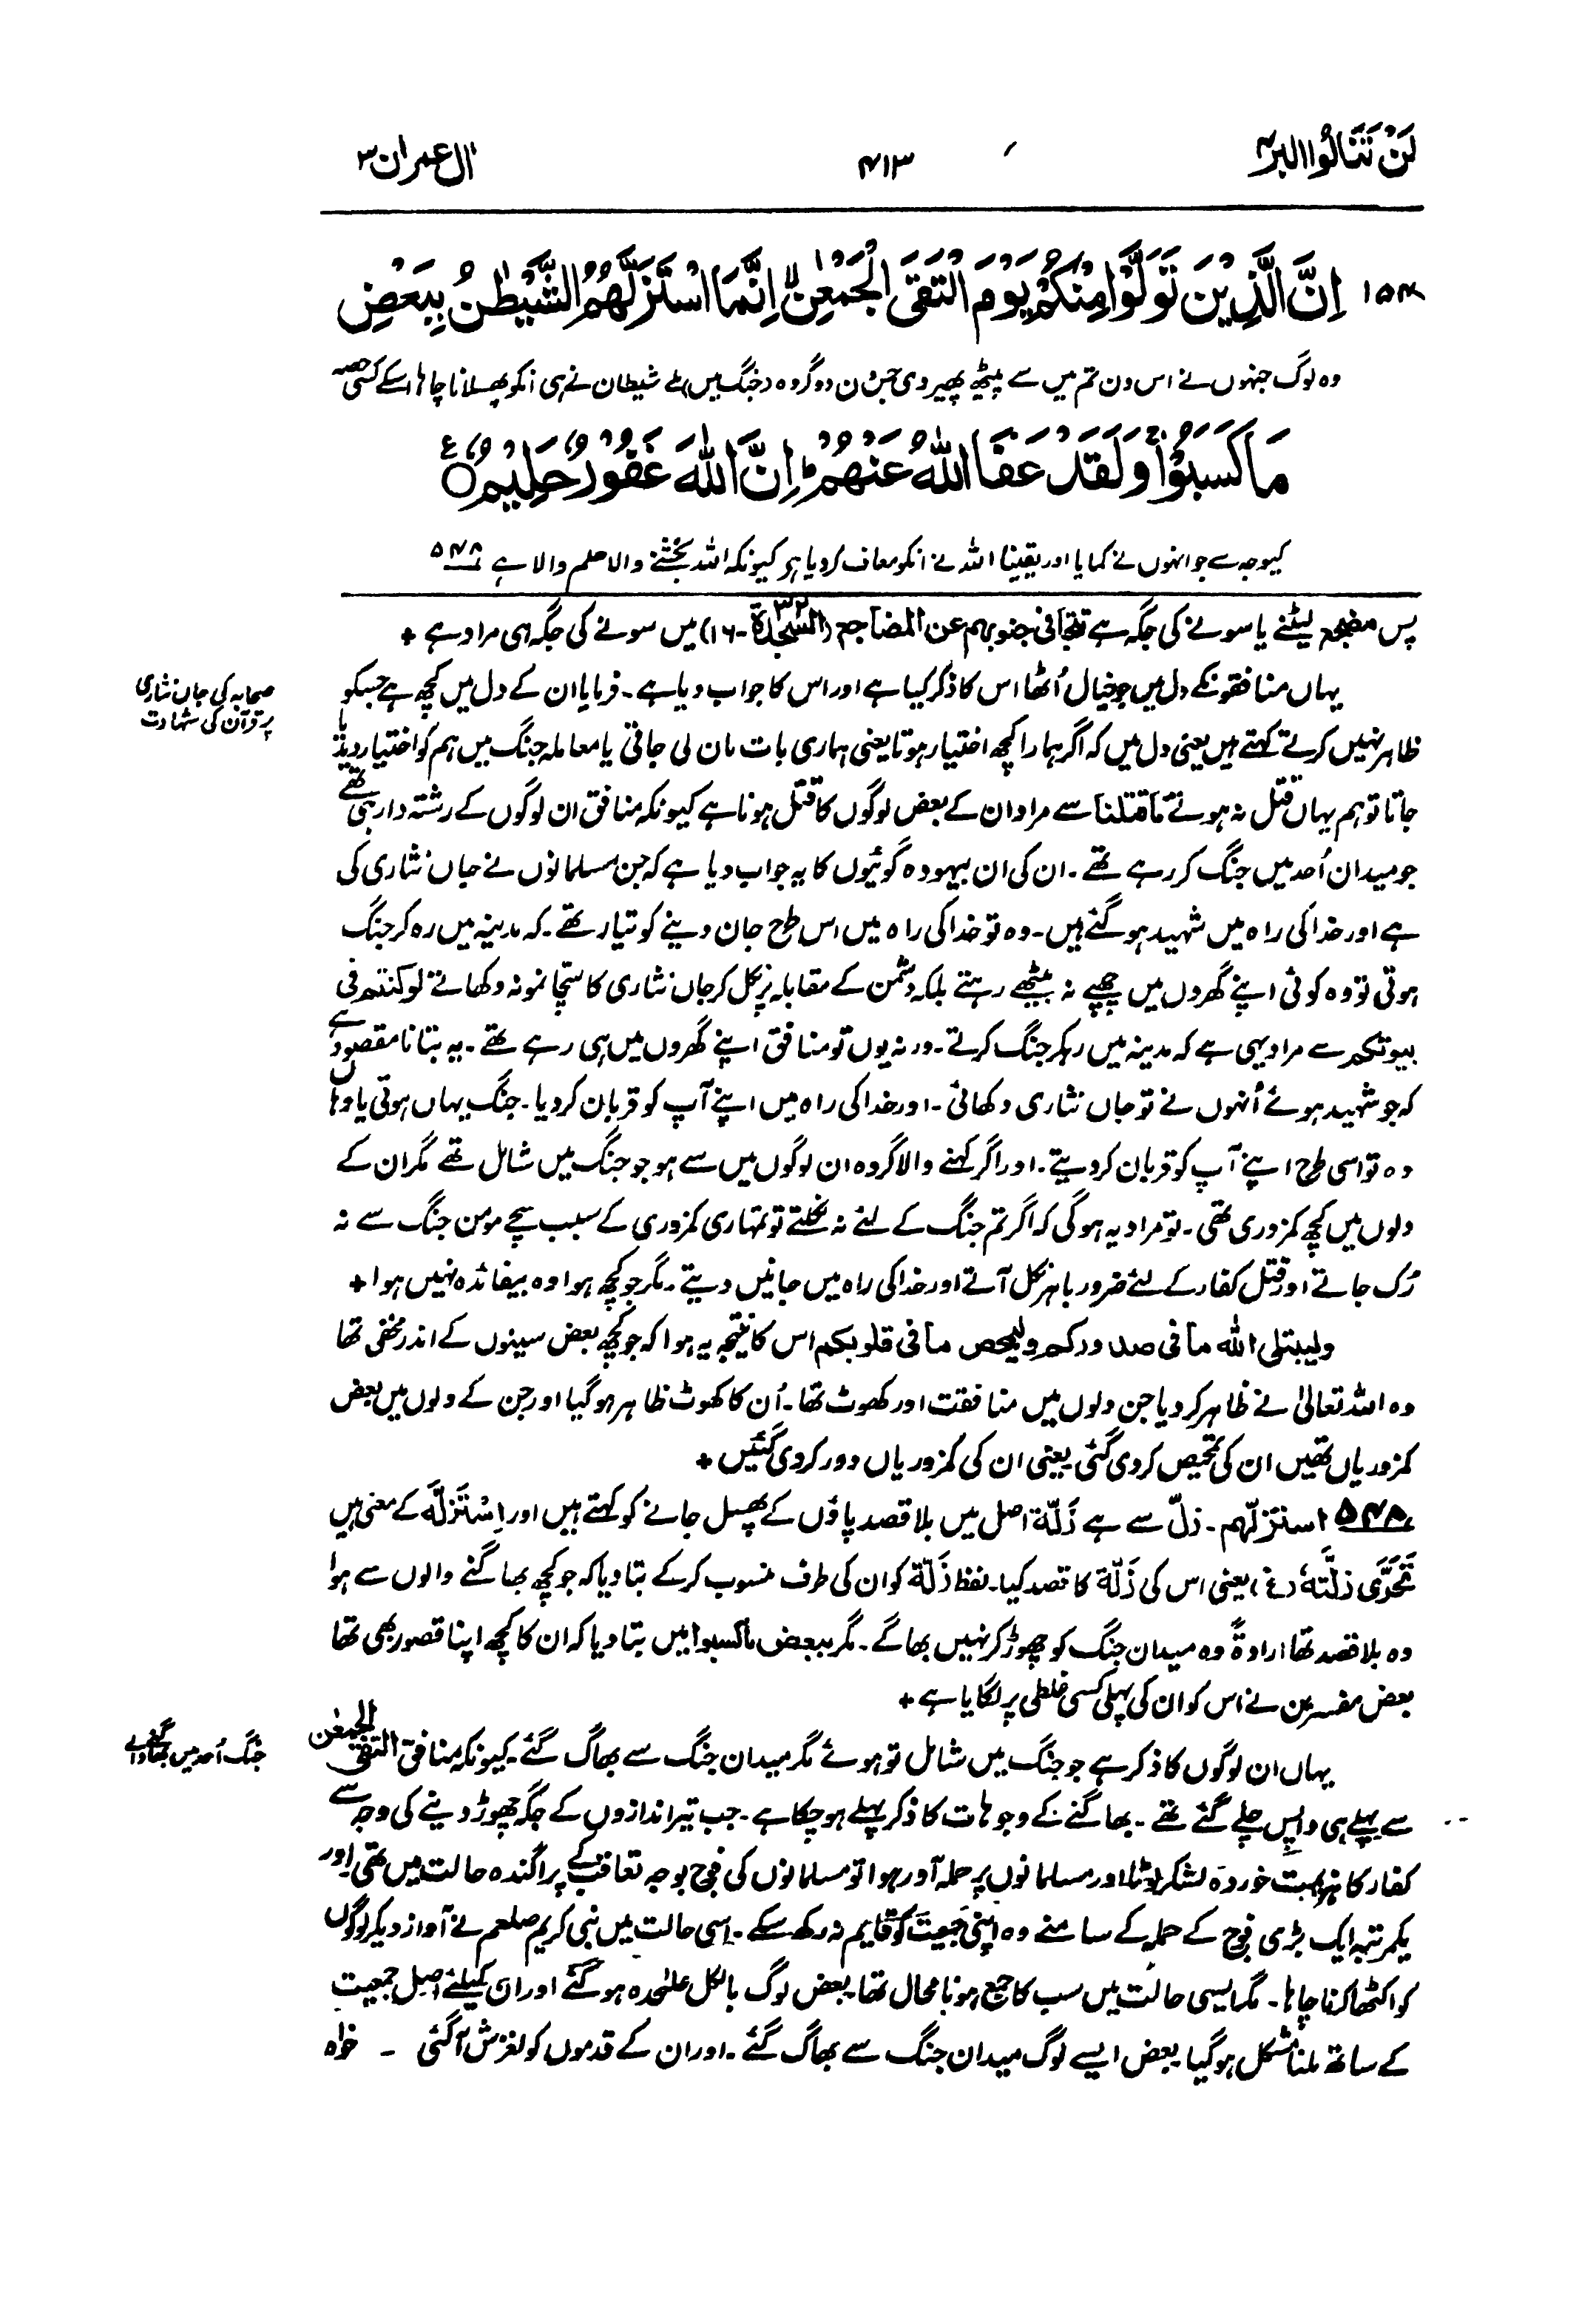 لَنْ تَنَالُوا البر ۴
۴۱۳
اٰل عمران ۳
۱۵۴ اِنَّ الَّذِيْنَ تَوَلَّوْا مِنْكُمْ يَوْمَ الْتَقَى الْجَمْعٰنِ ۙ اِنَّمَا اسْتَزَلَّهُمُ الشَّيْطٰنُ بِبَعْضِ
وہ لوگ جنہوں نے اس دن تم میں سے پیٹھ پھیر دی جس دن دو گروہ (جنگ میں) ملے شیطان نے ہی انکو پھسلانا چاہا اسکے کسی حصہ
مَا كَسَبُوْا ۚ وَلَقَدْ عَفَا اللّٰهُ عَنْهُمْ ؕ اِنَّ اللّٰهَ غَفُوْرٌ حَلِيْمٌ ۝ ع
کیوجہ سے جو انہوں نے کمایا اور یقیناً اللہ نے انکو معاف کر دیا ہے کیونکہ اللہ بخشنے والا حلم والا ہے ۵۴۸
پس مضجع لیٹنے یا سونے کی جگہ ہے تتجافی جنوبہم عن المضاجع (السَّجْدَة ۳۲-۱۶) میں سونے کی جگہ ہی مراد ہے +
صحابہ کی جاں نثاری
پر قرآن کی شہادت
یہاں منافقونکے دل میں جو خیال اُٹھا اس کا ذکر کیا ہے اور اس کا جواب دیا ہے۔ فرمایا ان کے دل میں کچھ ہے جسکو
ظاہر نہیں کرتے کہتے ہیں یعنی دل میں کہ اگر ہمارا کچھ اختیار ہوتا یعنی ہماری بات مان لی جاتی یا معاملہ جنگ میں ہم کو اختیار دیدیا
جاتا تو ہم یہاں قتل نہ ہوتے مَا قتلنا سے مراد ان کے بعض لوگوں کا قتل ہونا ہے کیونکہ منافق ان لوگوں کے رشتہ دار ہی تھے
جو میدان اُحد میں جنگ کر رہے تھے۔ ان کی ان بیہودہ گوئیوں کا یہ جواب دیا ہے کہ جن مسلمانوں نے جاں نثاری کی
ہے اور خدا کی راہ میں شہید ہو گئے ہیں۔ وہ تو خدا کی راہ میں اس طرح جان دینے کو تیار تھے۔ کہ مدینہ میں رہ کر جنگ
ہوتی تو وہ کوئی اپنے گھروں میں چھپے نہ بیٹھے رہتے بلکہ دشمن کے مقابلہ پر نکل کر جاں نثاری کا سچا نمونہ دکھاتے لو کنتم فی
بیوتکم سے مراد یہی ہے کہ مدینہ میں رہکر جنگ کرتے۔ ورنہ یوں تو منافق اپنے گھروں میں ہی رہے تھے۔ یہ بتانا مقصود ہے
کہ جو شہید ہوئے اُنہوں نے تو جاں نثاری دکھائی۔ اور خدا کی راہ میں اپنے آپ کو قربان کر دیا۔ جنگ یہاں ہوتی یا وہاں
وہ تو اسی طرح اپنے آپ کو قربان کر دیتے۔ اور اگر کہنے والا گروہ ان لوگوں میں سے ہو جو جنگ میں شامل تھے مگر ان کے
دلوں میں کچھ کمزوری تھی۔ تو مراد یہ ہوگی کہ اگر تم جنگ کے لئے نہ نکلتے تو تمہاری کمزوری کے سبب سچے مومن جنگ سے نہ
رُک جاتے اور قتل کفار کے لئے ضرور باہر نکل آتے اور خدا کی راہ میں جانیں دیتے۔ مگر جو کچھ ہوا وہ بیفائدہ نہیں ہوا +
ولیبتلی اللہ ما فی صدورکم ولیمحص ما فی قلوبکم اس کا نتیجہ یہ ہوا کہ جو کچھ بعض سینوں کے اندر مخفی تھا
وہ اللہ تعالیٰ نے ظاہر کر دیا جن دلوں میں منافقت اور کھوٹ تھا۔ اُن کا کھوٹ ظاہر ہو گیا اور جن کے دلوں میں بعض
کمزوریاں تھیں ان کی تمحیص کر دی گئی یعنی ان کی کمزوریاں دور کر دی گئیں +
۵۴۸ استزلّہم۔ زلّ سے ہے زَلّة اصل میں بلا قصد پاؤں کے پھسل جانے کو کہتے ہیں اور اِسْتَزَلَّہ کے معنی ہیں
تَحَرَّی زلَّتَہٗ (غ) یعنی اس کی زَلّة کا قصد کیا۔ لفظ زَلّة کو ان کی طرف منسوب کر کے بتا دیا کہ جو کچھ بھاگنے والوں سے ہوا
وہ بلا قصد تھا ارادۃً وہ میدان جنگ کو چھوڑ کر نہیں بھاگے۔ مگر ببعض ماکسبوا میں بتا دیا کہ ان کا کچھ اپنا قصور بھی تھا
بعض مفسرین نے اس کو ان کی پہلی کسی غلطی پر لگایا ہے +
جنگ اُحد میں بھاگنے والے
یہاں ان لوگوں کا ذکر ہے جو جنگ میں شامل تو ہوئے مگر میدان جنگ سے بھاگ گئے۔ کیونکہ منافق التقی الجمعٰن
سے پہلے ہی واپس چلے گئے تھے۔ بھاگنے کے وجوہات کا ذکر پہلے ہو چکا ہے۔ جب تیر اندازوں کے جگہ چھوڑ دینے کی وجہ سے
کفار کا ہزیمت خوردہ لشکر لوٹا اور مسلمانوں پر حملہ آور ہوا تو مسلمانوں کی فوج بوجہ تعاقب کے پراگندہ حالت میں تھی۔ اور
یکمرتبہ ایک بڑی فوج کے حملہ کے سامنے وہ اپنی جمعیت کو قایم نہ رکھ سکے۔ اسی حالت میں نبی کریم صلعم نے آواز دیکر لوگوں
کو اکٹھا کرنا چاہا۔ مگر ایسی حالت میں سب کا جمع ہونا محال تھا۔ بعض لوگ بالکل علٰحدہ ہو گئے اور ان کیلئے اصل جمعیت
کے ساتھ ملنا مشکل ہو گیا بعض ایسے لوگ میدان جنگ سے بھاگ گئے۔ اور ان کے قدموں کو لغزش آ گئی ۔ خواہ